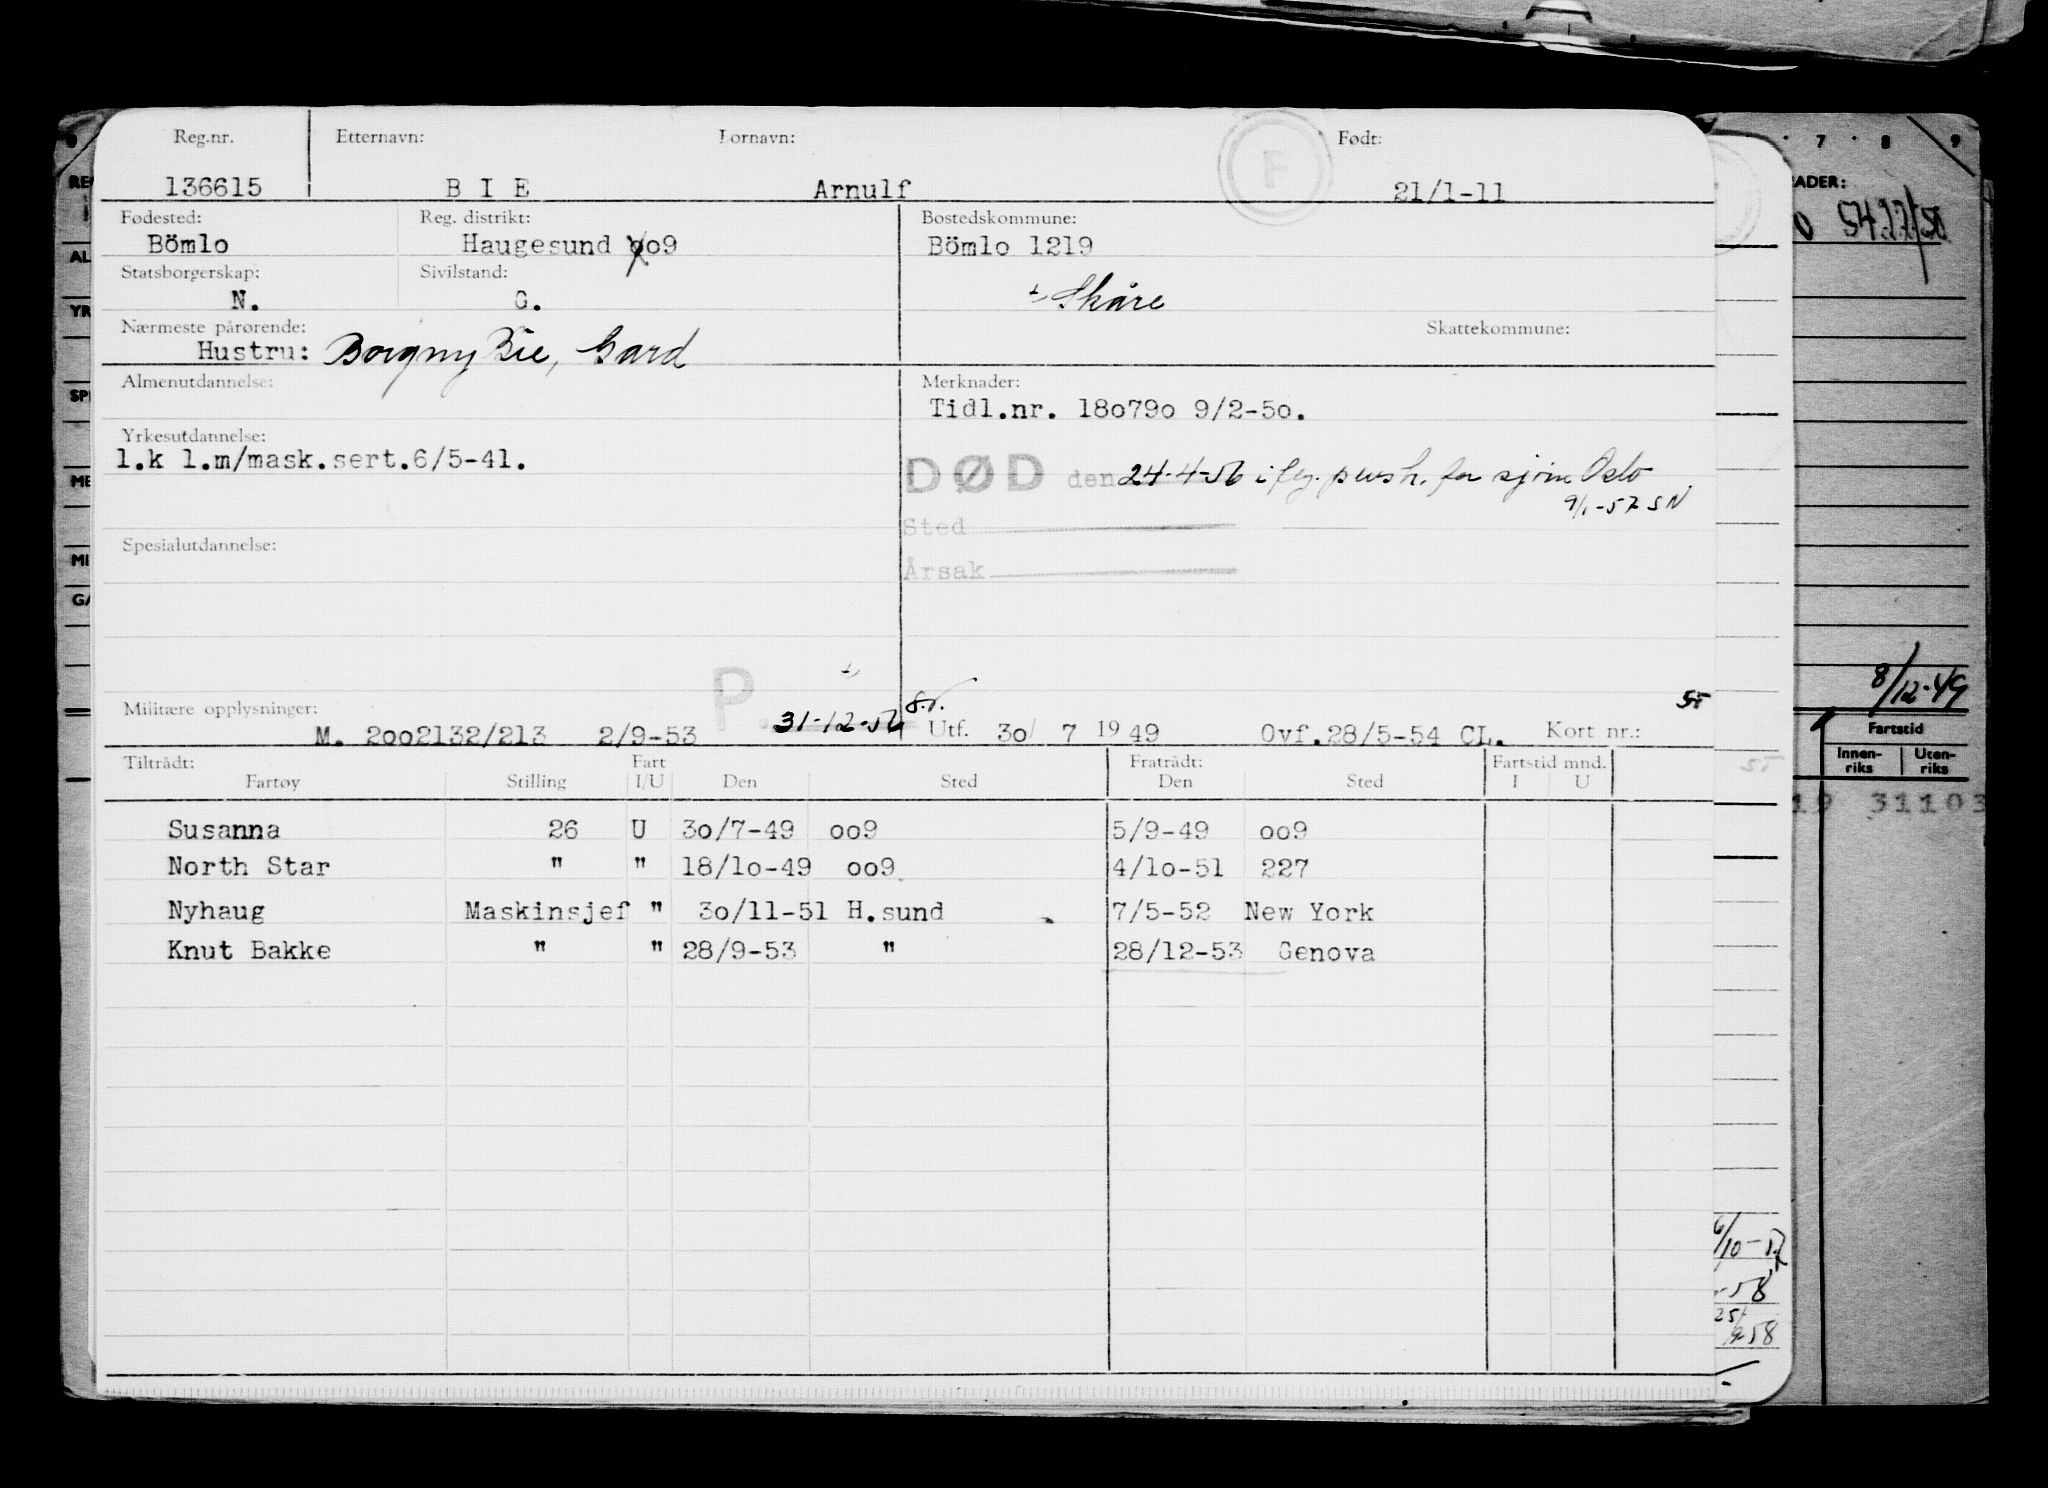 Reg.nr. Etternavn: Fornavn: Født:
136615 B I E Arnulf 21/1-11
F
Fødested: Reg. distrikt: Bostedskommune:
Bömlo Haugesund oo9 Bömlo 1219
Statsborgerskap: Sivilstand:
N. G. Skåre
Nærmeste pårørende: Skattekommune:
Hustru: Borgny Bie, Gard
Almenutdannelse: Merknader:
Tidl.nr. 18o79o 9/2-5o.
Yrkesutdannelse:
1.k 1.m/mask.sert.6/5-41.
DØD den 24-4-56 i flg. pensk. for sjøm Oslo
9/1-57 SN
Sted
Spesialutdannelse:
Årsak
P.
Militære opplysninger:
M. 2oo2132/213 2/9-53 31-12-56 Utf. 3o/ 7 1949 Ovf.28/5-54 CL. Kort nr.:
Tiltrådt: Fart Fratrådt: Fartstid mnd.
Fartøy Stilling I/U Den Sted Den Sted I U
Susanna 26 U 3o/7-49 oo9 5/9-49 oo9
North Star " " 18/1o-49 oo9 4/1o-51 227
Nyhaug Maskinsjef " 3o/11-51 H.sund 7/5-52 New York
Knut Bakke " " 28/9-53 " 28/12-53 Genova
7 8 9
8/12-49
Fartstid
Innen-riks Uten-riks
19 31103